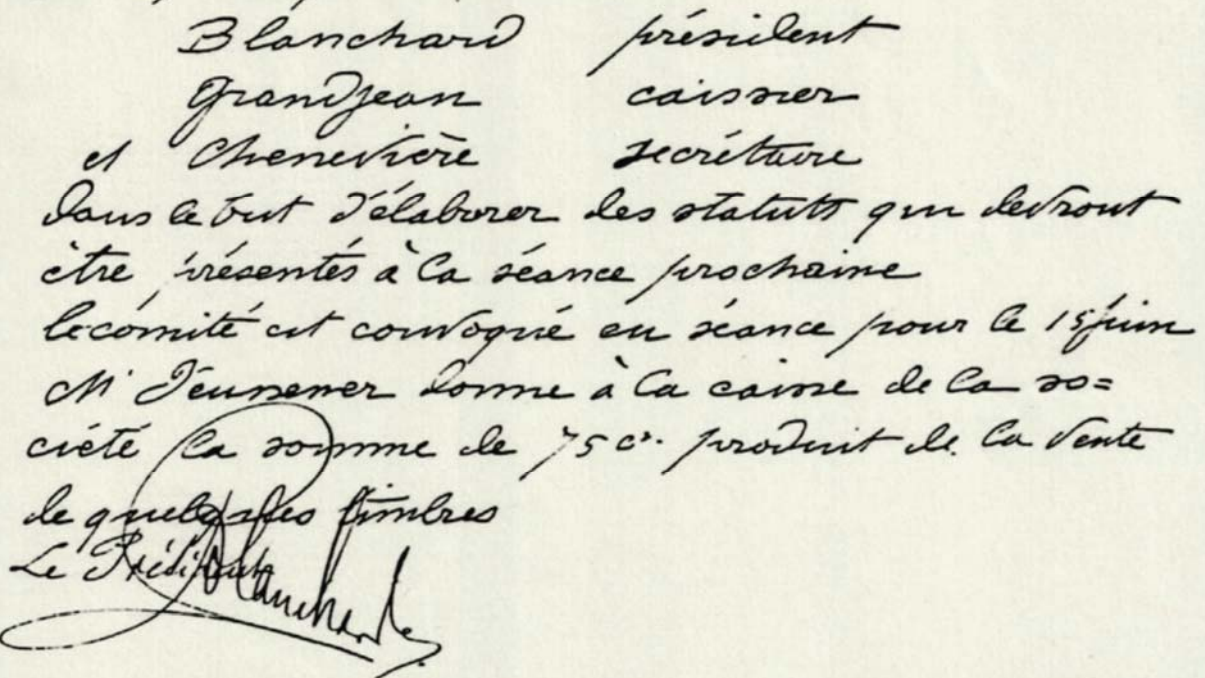 Blanchard président
Grandjean caissier
et Chenevière secrétaire
dans le but d'élaborer des statuts qui devront
être présentés à la séance prochaine
le comité est convoqué en séance pour le 15 juin
M' donne à la caisse de la so=
ciété la somme de 75 cs. produit de la vente
de quelques timbres
Le Président
Blanchard